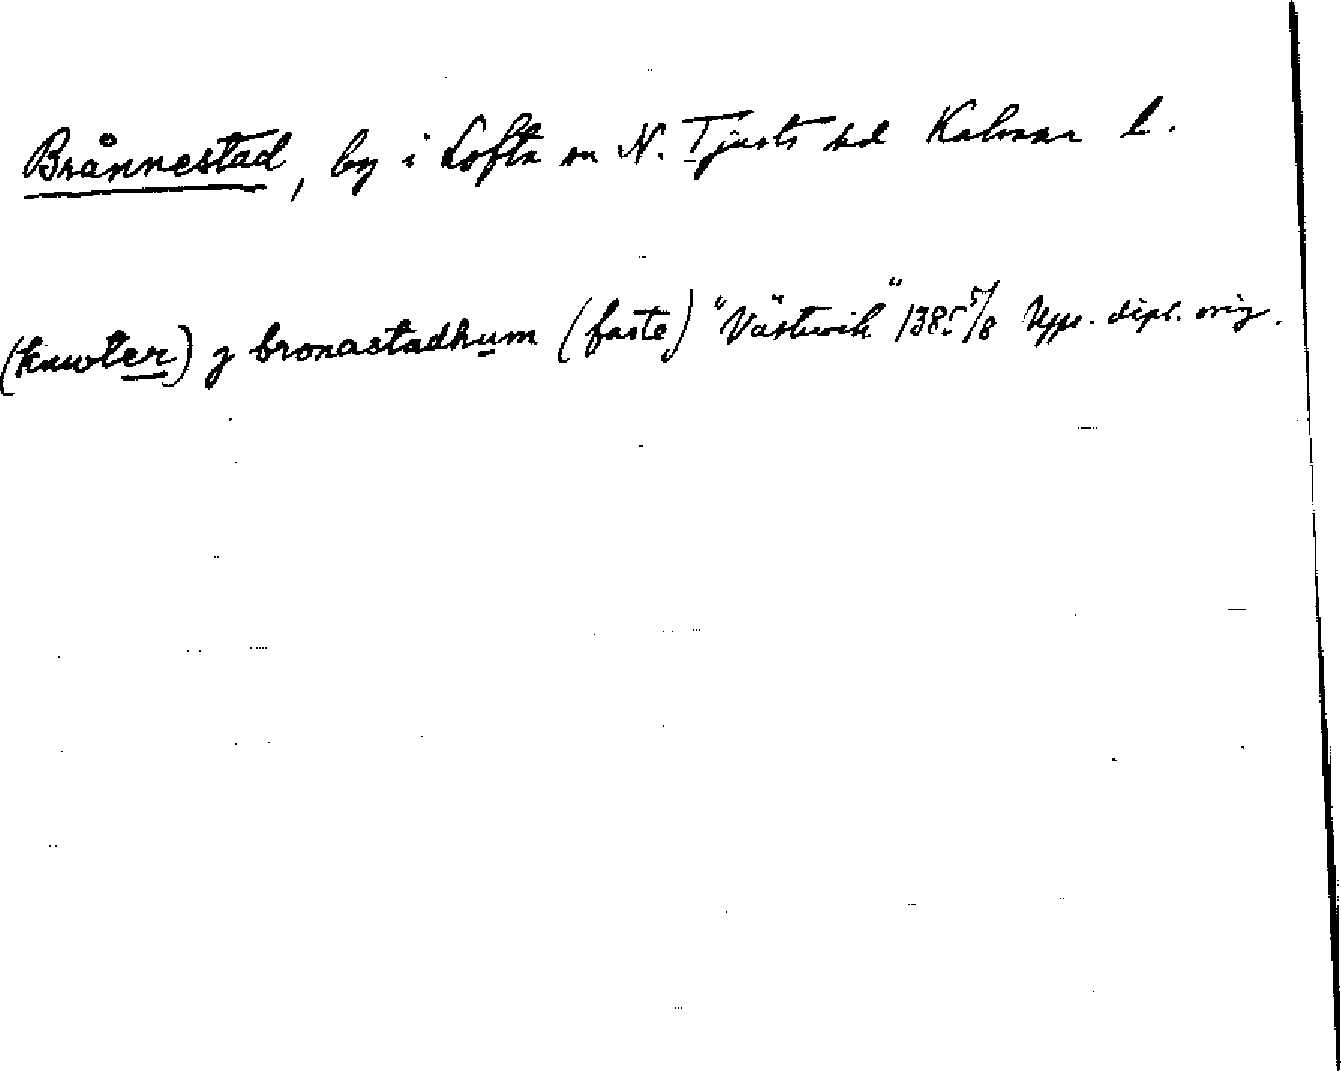 Brånnestad, by i Lofta sn N. Tjusts hd Kalmar l.
(knwter) j bronastadhum (faste) "Västervik" 1385 5/8 Upps. dipl. orig.